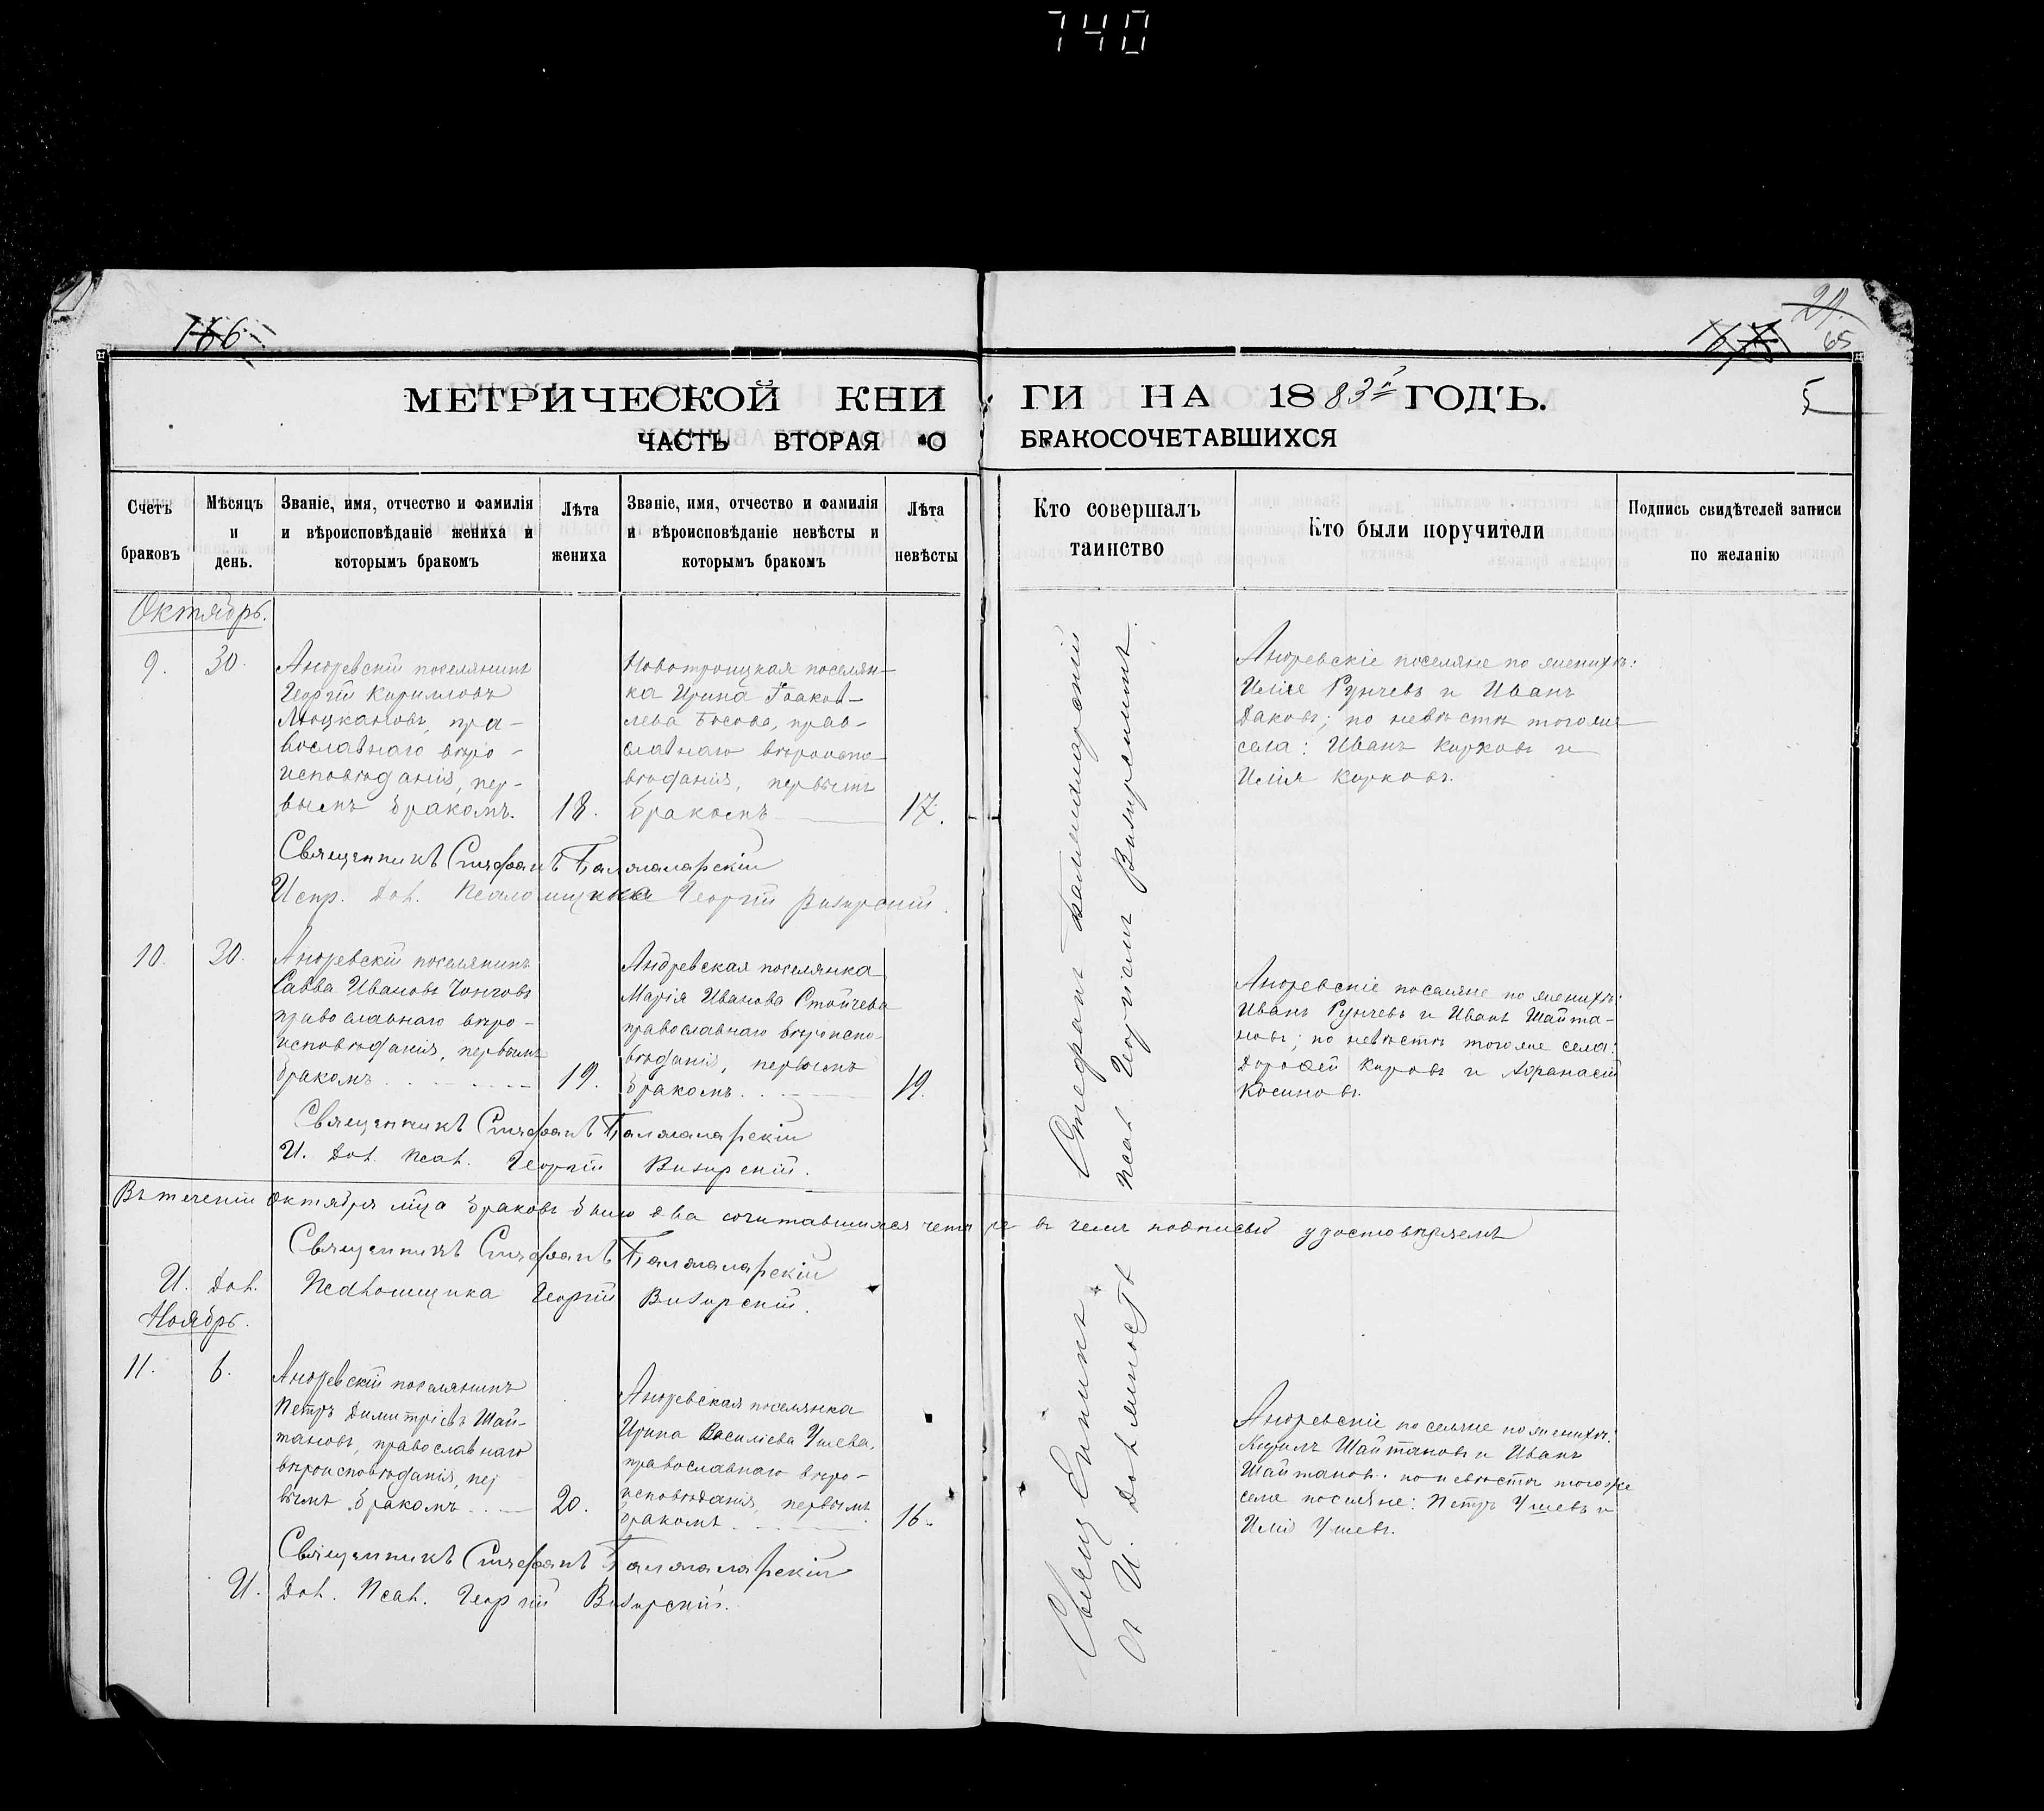 740
166
21.
65
5
МЕТРИЧЕСКОЙ КНИ ГИ НА 1883й ГОДЪ.
ЧАСТЬ ВТОРАЯ О БРАКОСОЧЕТАВШИХСЯ
Счетъ браковъ
Мѣсяцъ и день.
Званіе, имя, отчество и фамилія и вѣроисповѣданіе жениха и которымъ бракомъ
Лѣта жениха
Званіе, имя, отчество и фамилія и вѣроисповѣданіе невѣсты и которымъ бракомъ
Лѣта невѣсты
Кто совершалъ таинство
Кто были поручители
Подпись свидѣтелей записи по желанію
Октябрь.
9.
30.
Андревскій поселянинъ
Георгій Кирилловъ
пра-
вославнаго вѣро-
исповѣданія, пер-
вымъ бракомъ.
18.
Новотроицкая поселян-
ка Ирина Іаков-
лева Босова, прав-
славнаго вѣроиспо-
вѣданія, первымъ
бракомъ
17.
Андревскіе поселяне по женихѣ:
Илія Рунчевъ и Иванъ
Даковъ; по невѣстѣ того же
села: Иванъ Курковъ и
Илія Курковъ.
Священникъ Стефанъ Балжаларскій
Испр. Дол. Псаломщика Георгій Визирскій.
10.
30.
Андревскій поселянинъ
Савва Ивановъ Чонговъ
православнаго вѣро-
исповѣданія, первымъ
бракомъ
19.
Андревская поселянка
Марія Иванова Стойчева
православнаго вѣроиспо-
вѣданія, первымъ
бракомъ
19.
Андревскіе поселяне по женихѣ:
Иванъ Рунчевъ и Иванъ Шайта-
новъ; по невѣстѣ того же села:
Дорофей Кировъ и Афанасій
Косиновъ.
Священникъ Стефанъ Балжаларскій
И. Дол. Псал. Георгій Визирскій.
Въ теченіи Октября мѣца браковъ было два сочитавшихся четыре въ чемъ подписью удостовѣряемъ
Священникъ Стефанъ Балжаларскій
И. Дол. Псаломщика Георгій Визирскій.
Ноябрь.
11.
6.
Андревскій поселянинъ
Петръ Димитріевъ Шай-
тановъ, православнаго
вѣроисповѣданія, пер
вымъ бракомъ
20.
Андревская поселянка
Ирина Василіева Ушева,
православнаго вѣро-
исповѣданія, первымъ
бракомъ
16.
Андревскіе поселяне по женихѣ:
Кирилъ Шайтановъ и Иванъ
Шайтановъ. по невѣстѣ того же
села поселяне: Петръ Ушевъ и
Илія Ушевъ.
Священникъ Стефанъ Балжаларскій
И. Дол. Псал. Георгій Визирскій.
Стефанъ Балжаларскій
Съ И. Должность Псал. Георгіемъ Визирскимъ.